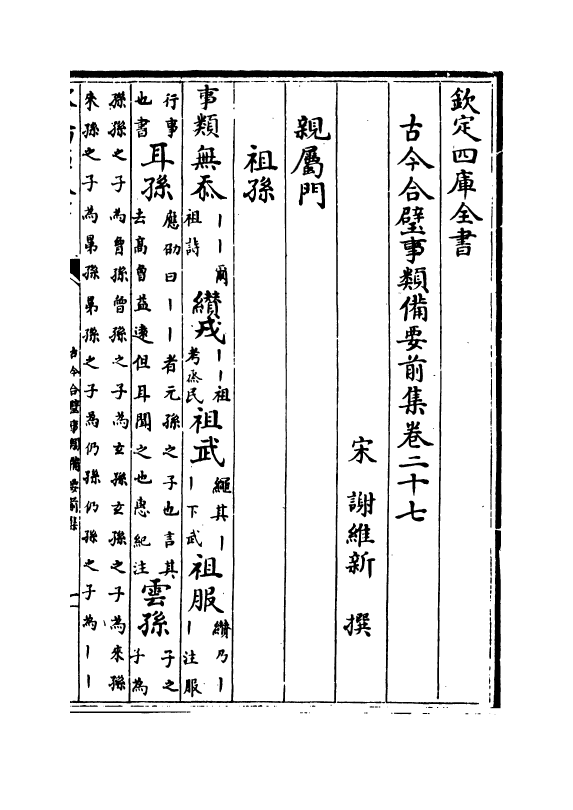 欽定四庫全書
古今合璧事類備要前集卷二十七
宋 謝維新 撰
親屬門
祖孫
事類無忝丨丨爾祖詩纉戎丨丨祖考烝民祖武繩其丨丨下武祖服纉乃丨丨注服
行事也書耳孫應劭曰丨丨者元孫之子也言其去高曾益遠但耳聞之也惠紀注雲孫子之子為
孫孫之子為曾孫曾孫之子為玄孫玄孫之子為來孫
來孫之子為晜孫晜孫之子為仍孫仍孫之子為丨丨
古今合璧事類備要前集